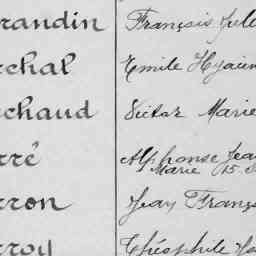 randin François Jule
rchal Emile Hyacin
rchaud Victor Marie
rré Alphonse Jea
Marie
rron Jean Franço
rroy Théophile